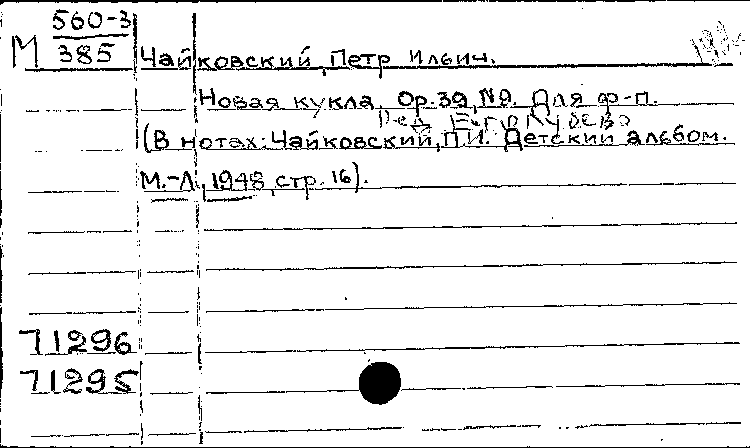 560-3
М 385 Чайковский, Петр Ильич.
Новая кукла. Op. 39, №9. Для ф-п.
(В нотах: Чайковский, П.И. Детский альбом.
М.-Л., 1948, стр. 16).
71296
71295